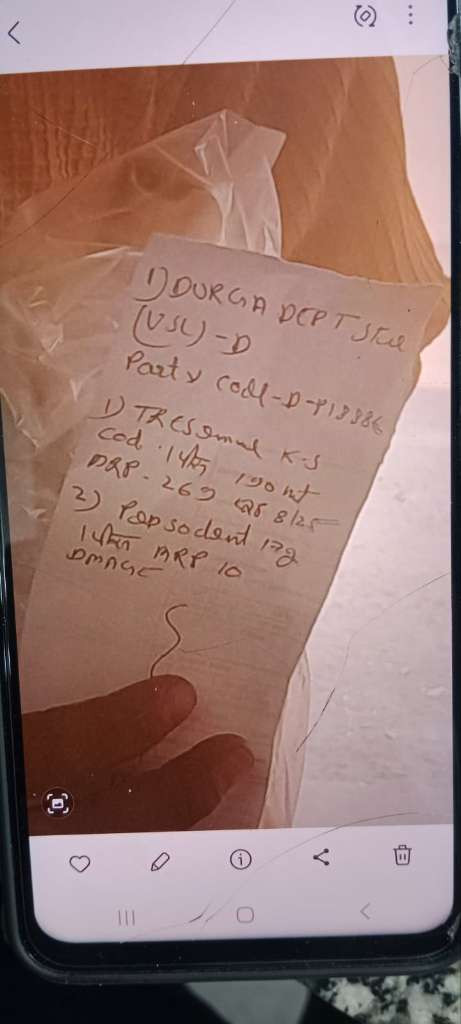 1) DURGA DEPT Store
(USL) -D
Party Code-D-P18886
1) TRESemme K-S
Cod. 14Pcs 190 ml
MRP. 269 8/25
2) Pepsodent 17g
14Pcs MRP 10
DMAGE